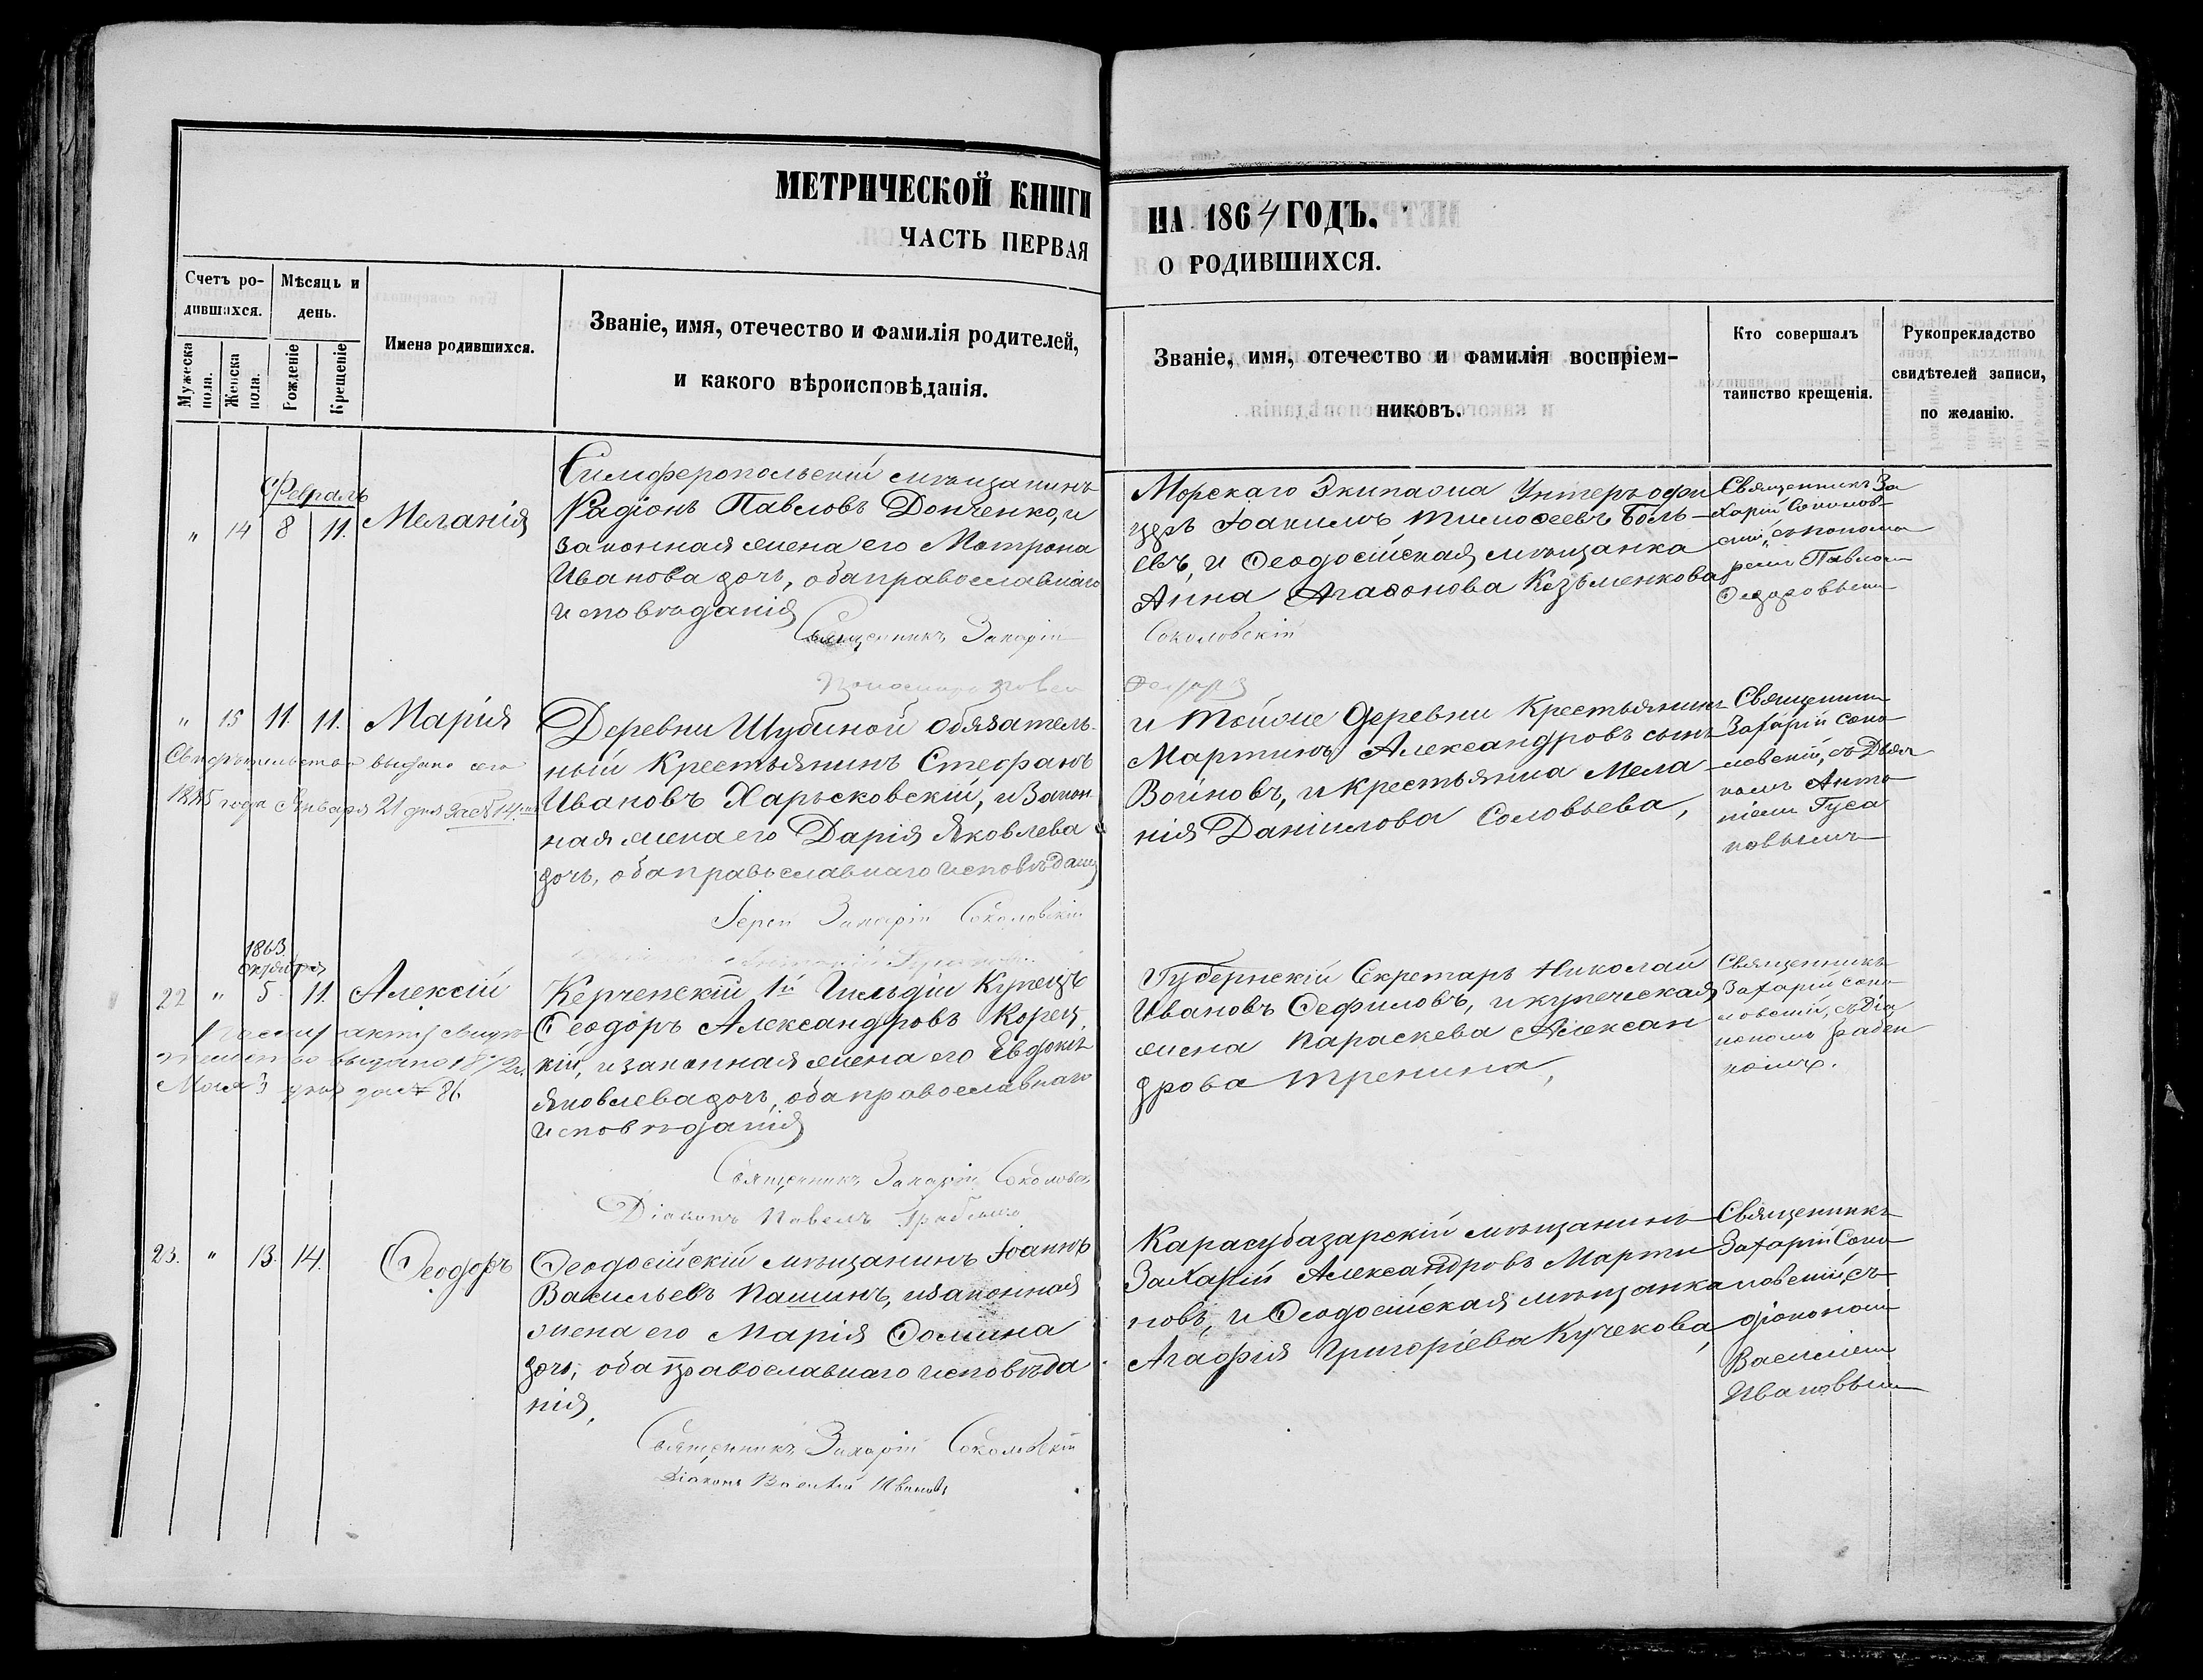 МЕТРИЧЕСКОЙ КНИГИ
ЧАСТЬ ПЕРВАЯ
НА 1864 ГОДЪ.
О РОДИВШИХСЯ.
Счетъ ро-
дившихся.
Мужеска
пола.
Женска
пола.
Мѣсяцъ и
день.
Рожденіе
Крещеніе
Имена родившихся.
Званіе, имя, отечество и фамилія родителей,
и какого вѣроисповѣданія.
Званіе, имя, отечество и фамилія воспріем-
никовъ.
Кто совершалъ
таинство крещенія.
Рукопрекладство
свидѣтелей записи,
по желанію.
Февраль
" 14 8 11. Меланія
Симферопольскій мѣщанинъ
Радіонъ Павловъ Донченко, и
законная жена его Мотрона
Иванова дочь, оба православнаго
исповѣданія
Священникъ Захарій
Соколовскій
Морскаго Экипажа Унтеръ офи
церъ Іоакимъ Тимофеевъ
евъ, и Ѳеодосійская мѣщанка
Анна Агаѳонова Козьменкова
Священникъ За
харій Соколов-
скій, съ понома
ремъ Павлом
Ѳедоровым
" 15 11. 11. Марія
Свидѣтельство выдано сего
1885 года Января 21 дня за № 14
Деревни Шубиной Обязатель-
ный Крестьянинъ Стефанъ
Ивановъ Харьсковскій, и Закон
ная жена его Дарія Яковлева
дочь, оба православнаго исповѣдан
Іерей Захарій Соколовскій
и Тойже деревни Крестьянинъ
Мартинъ Александровъ сынъ
Войновъ, и крестьянка Мела
нія Даніилова Соловьева,
Священник
Захарій Соко
ловскій, съ Дьяч
комъ Анто
ніем Гуса
ковымъ
1863
октября
22 " 5 11. Алексій
выдано 1872 г.
Мая 3 дня за № 86
Керченскій 1й Гильдіи Купецъ
Ѳеодоръ Александровъ Корец
кій, и законная жена его Евдокія
Яковлева дочь, оба православнаго
исповѣданія
Священникъ Захарій Соколовск
Діаконъ Павелъ
Губернскій Секретарь Николай
Ивановъ Сефиловъ, и купеческая
жена Параскева Алексан
дрова Тренина,
Священникъ
Захарій Соко
ловскій, съ Діа
кономъ
23. " 13. 14. Ѳеодоръ
Ѳеодосійскій мѣщанинъ Іоаннъ
Васильевъ Пашинъ, и законная
жена его Марія Ѳомина
дочь, оба православнаго исповѣда
нія,
Священникъ Захарій Соколовскій
Діаконъ Василій Ивановъ
Карасубазарскій мѣщанинъ
Захарій Александровъ Марти
новъ, и Ѳеодосійская мѣщанка
Агафія Григоріева Кучекова,
Священникъ
Захарій Соко
ловскій, съ
діаконом
Василіем
Ивановым